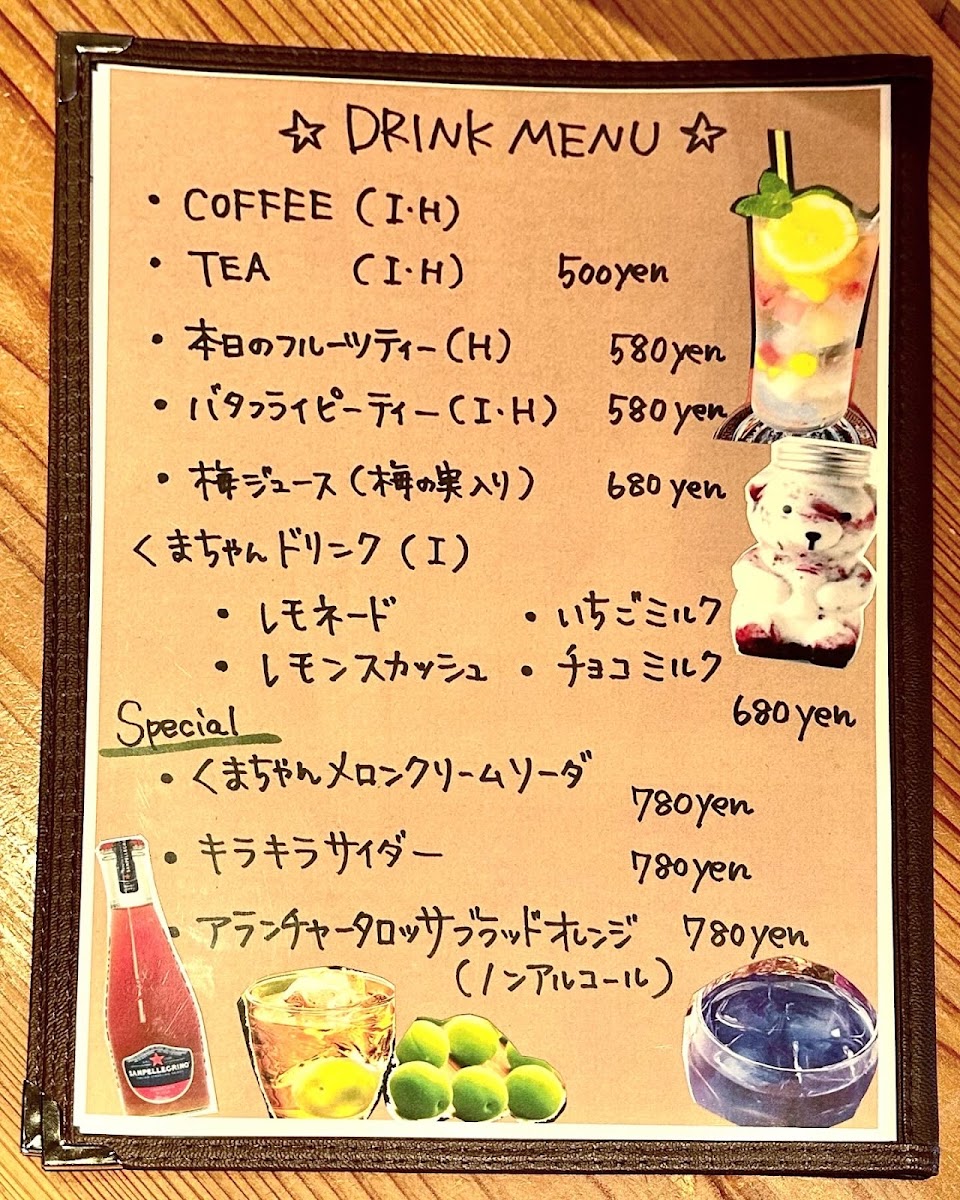 ☆ DRINK MENU ☆
・COFFEE (I・H)
・TEA (I・H) 500yen
・本日のフルーツティー(H) 580yen
・バタフライピーティー(I・H) 580yen
・梅ジュース(梅の実入り) 680yen
くまちゃんドリンク(I)
・レモネード ・いちごミルク
・レモンスカッシュ ・チョコミルク
680yen
Special
・くまちゃんメロンクリームソーダ
780yen
・キラキラサイダー 780yen
・アランチャータロッサブラッドオレンジ 780yen
(ノンアルコール)
SANPELLEGRINO